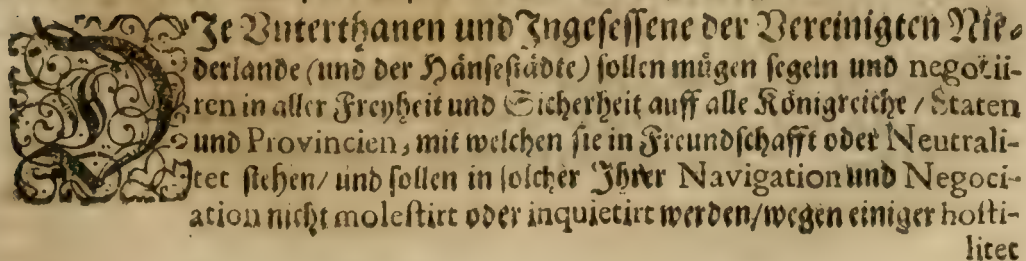 DJe Vnterthanen und Ingesessene der Vereinigten Nie-
derlande (und der Hånsestådte) sollen můgen segeln und negotii-
ren in aller Freyheit und Sicherheit auff alle Kőnigreiche / Staten
und Provincien, mit welchen sie in Freundschafft oder Neutrali-
tet stehen / und sollen in solcher Ihrer Navigation und Negoci-
ation nicht molestirt oder inquietirt werden / wegen einiger hosti-
litet